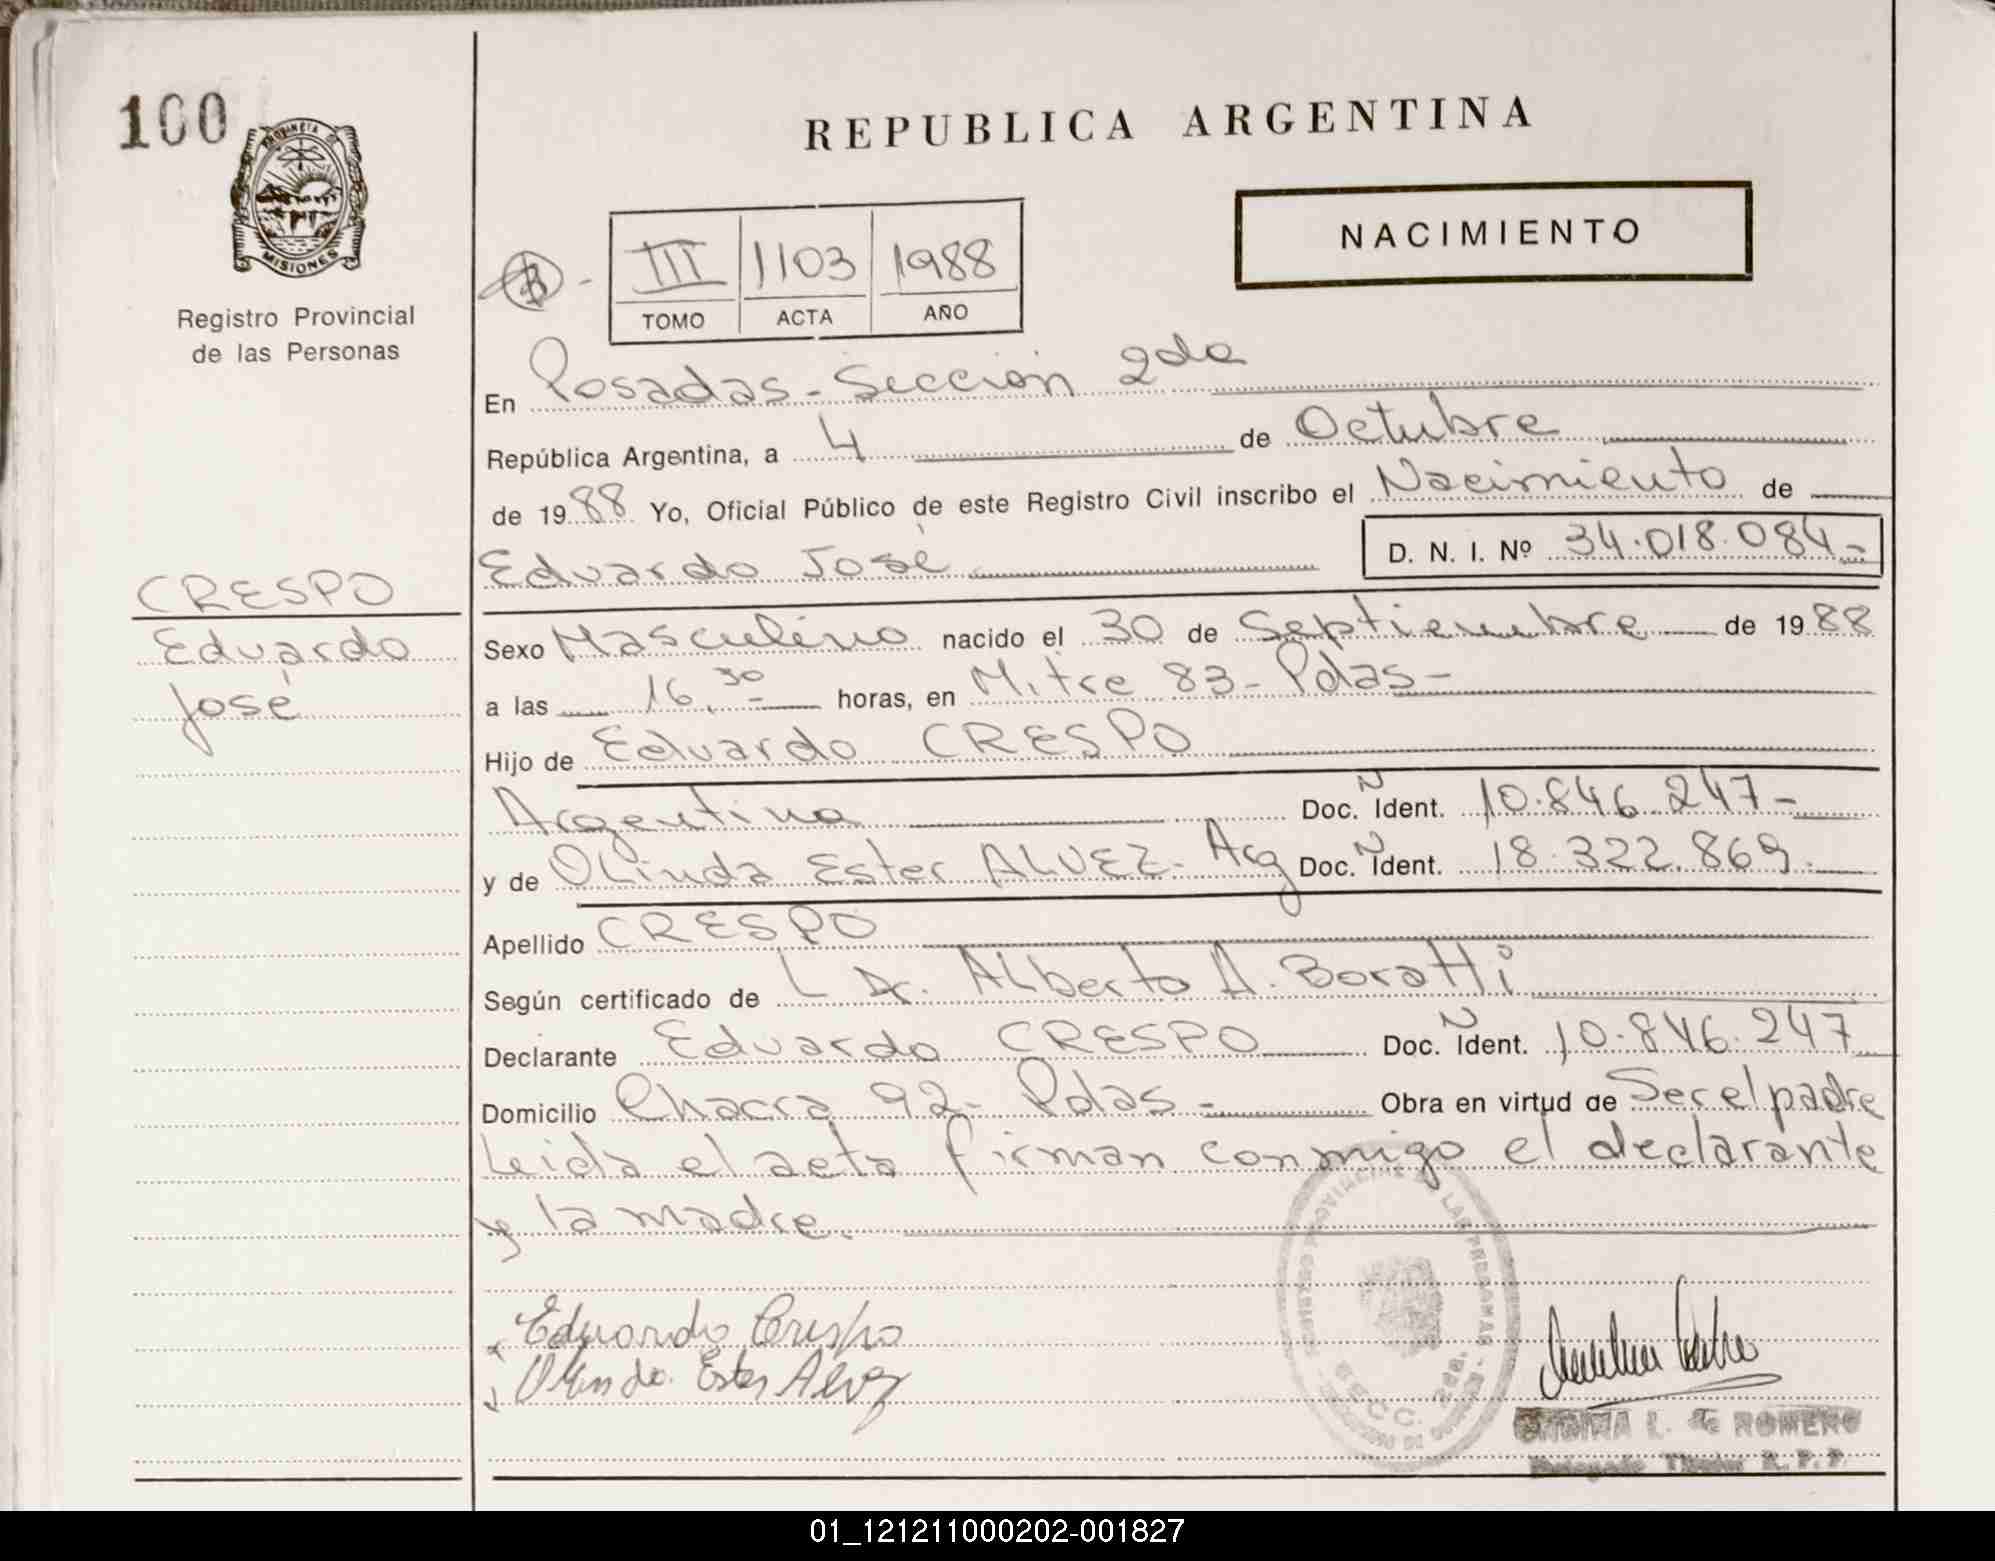 100
PROVINCIA DE
MISIONES
Registro Provincial
de las Personas
REPUBLICA ARGENTINA
NACIMIENTO
III 1103 1988
TOMO ACTA AÑO
En Posadas - Sección 2da
República Argentina, a 4 de Octubre
de 1988 Yo, Oficial Público de este Registro Civil inscribo el Nacimiento de
Eduardo José D. N. I. Nº 34.018.084-
CRESPO
Eduardo
José
Sexo Masculino nacido el 30 de Septiembre de 1988
a las 16,30 horas, en Mitre 83- Pdas-
Hijo de Eduardo CRESPO
Argentina Doc. N Ident. 10.846.247-
y de OLinda Ester ALVEZ- Arg Doc. N Ident. 18.322.869.
Apellido CRESPO
Según certificado de Dr. ALberto A. Boratti
Declarante Eduardo CRESPO Doc. N Ident. 10.846.247
Domicilio Chacra 92- Pdas- Obra en virtud de Ser el padre
Leida el acta firman conmigo el declarante
y la madre.
Eduardo Crespo
Olinda Ester Alvez
L. de ROMERO
Titular R. P. P.
01_121211000202-001827